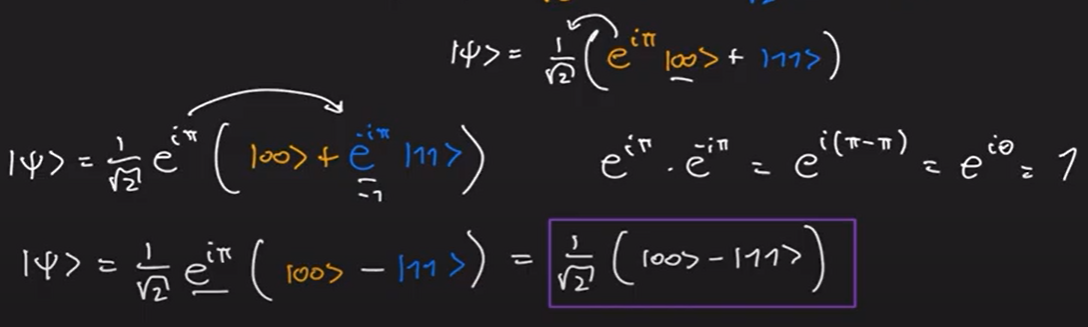 |ψ> = 1/√2 ( e^{iπ} |00> + |11> )
|ψ> = 1/√2 e^{iπ} ( |00> + e^{-iπ} |11> )
-1
e^{iπ} · e^{-iπ} = e^{i(π-π)} = e^{i0} = 1
|ψ> = 1/√2 e^{iπ} ( |00> - |11> ) = 1/√2 ( |00> - |11> )